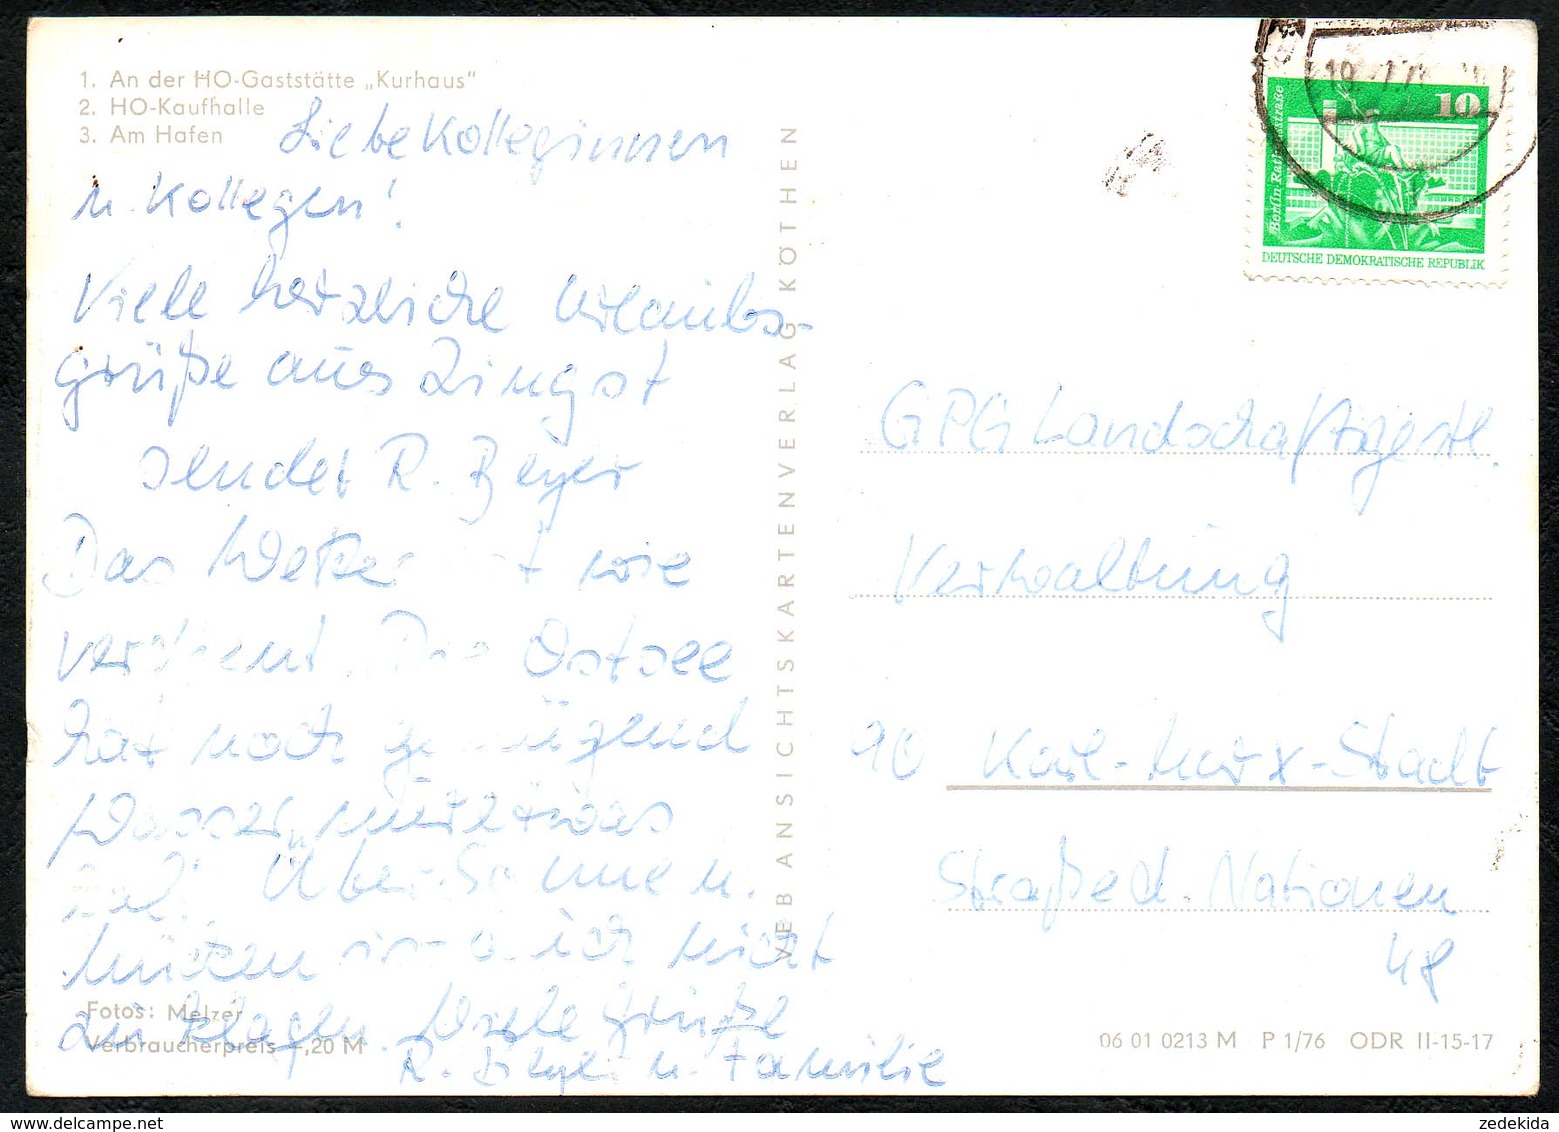 1. An der HO-Gaststätte „Kurhaus"
2. HO-Kaufhalle
3. Am Hafen
Liebe Kolleginnen
u. Kollegen!
Viele herzliche Urlaubs-
grüße aus Zingst
sendet R. Beyer
Das Wetter ist wie
verdient. Die Ostsee
hat noch genügend
Wasser, nur etwas
Über Sonne u.
Mücken ist auch nicht
zu klagen. Viele Grüße
R. Beyer u. Familie
Fotos: Melzer
Verbraucherpreis –,20 M
VEB ANSICHTSKARTENVERLAG KÖTHEN
10
DEUTSCHE DEMOKRATISCHE REPUBLIK
GPG Landschaftsgestl.
Verwaltung
90 Karl-Marx-Stadt
Straße d. Nationen
48
06 01 0213 M P 1/76 ODR II-15-17
zedekida